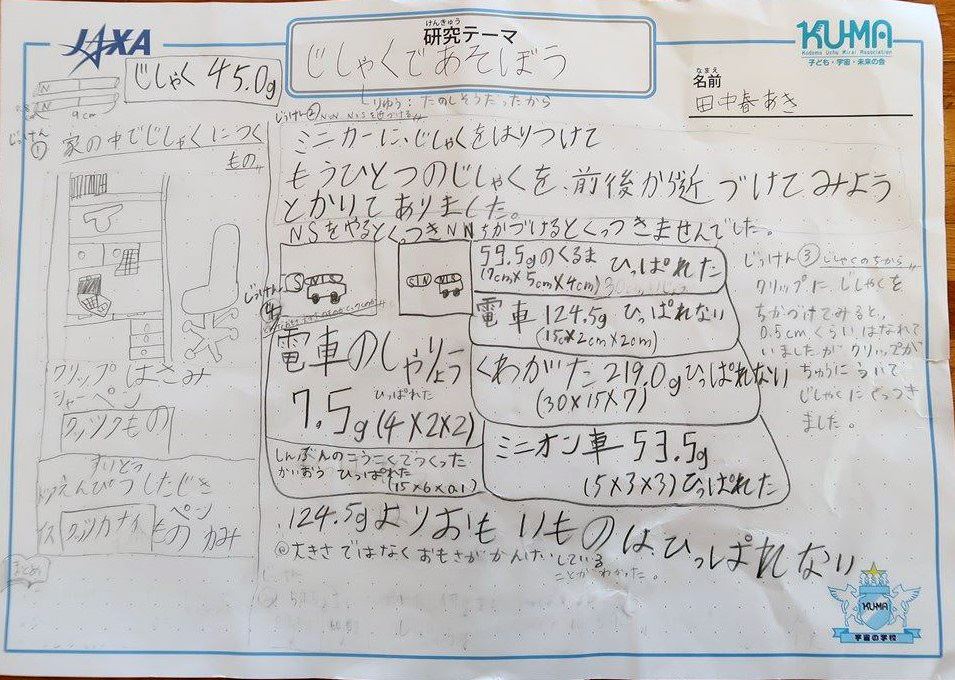 JAXA
研究テーマ
けんきゅう
じしゃくであそぼう
りゆう:たのしそうだったから
KU-MA
Kodomo Uchu Mirai Association
子ども・宇宙・未来の会
なまえ
名前
田中春あき
じしゃく 45.0g
N
N
9cm
じっけん①
家の中でじしゃくにつく
もの
クリップ はさみ
シャーペン
クッツクもの
すいとう
えんぴつ したじき
イス クッツカナイもの ペン かみ
まとめ
じっけん②
ミニカーに、じしゃくをはりつけて
もうひとつのじしゃくを、前後から近づけてみよう
とかりてありました。
NSをやるとくっつきNNちかづけるとくっつきませんでした。
S NS
SN NS
じっけん④
電車のしゃりょう
ひっぱれた
7.5g(4×2×2)
しんぶんのこうこくでつくった
かいおう ひっぱれた
(15×6×0.1)
59.5gのくるま ひっぱれた
(7cm×5cm×4cm)
電車 124.5g ひっぱれない
(15cm×2cm×2cm)
くわがた 219.0g ひっぱれない
(30×15×7)
ミニオン車ー53.5g
(5×3×3)ひっぱれた
じっけん③じしゃくのちから
クリップに、じしゃくを
ちかづけてみると、
0.5cmくらいはなれて
いましたがクリップが
ちゅうにういて
じしゃくにくっつき
ました。
124.5gよりおもいものはひっぱれない
◎大きさではなくおもさがかんけいしている
ことがわかった。
KU-MA
宇宙の学校